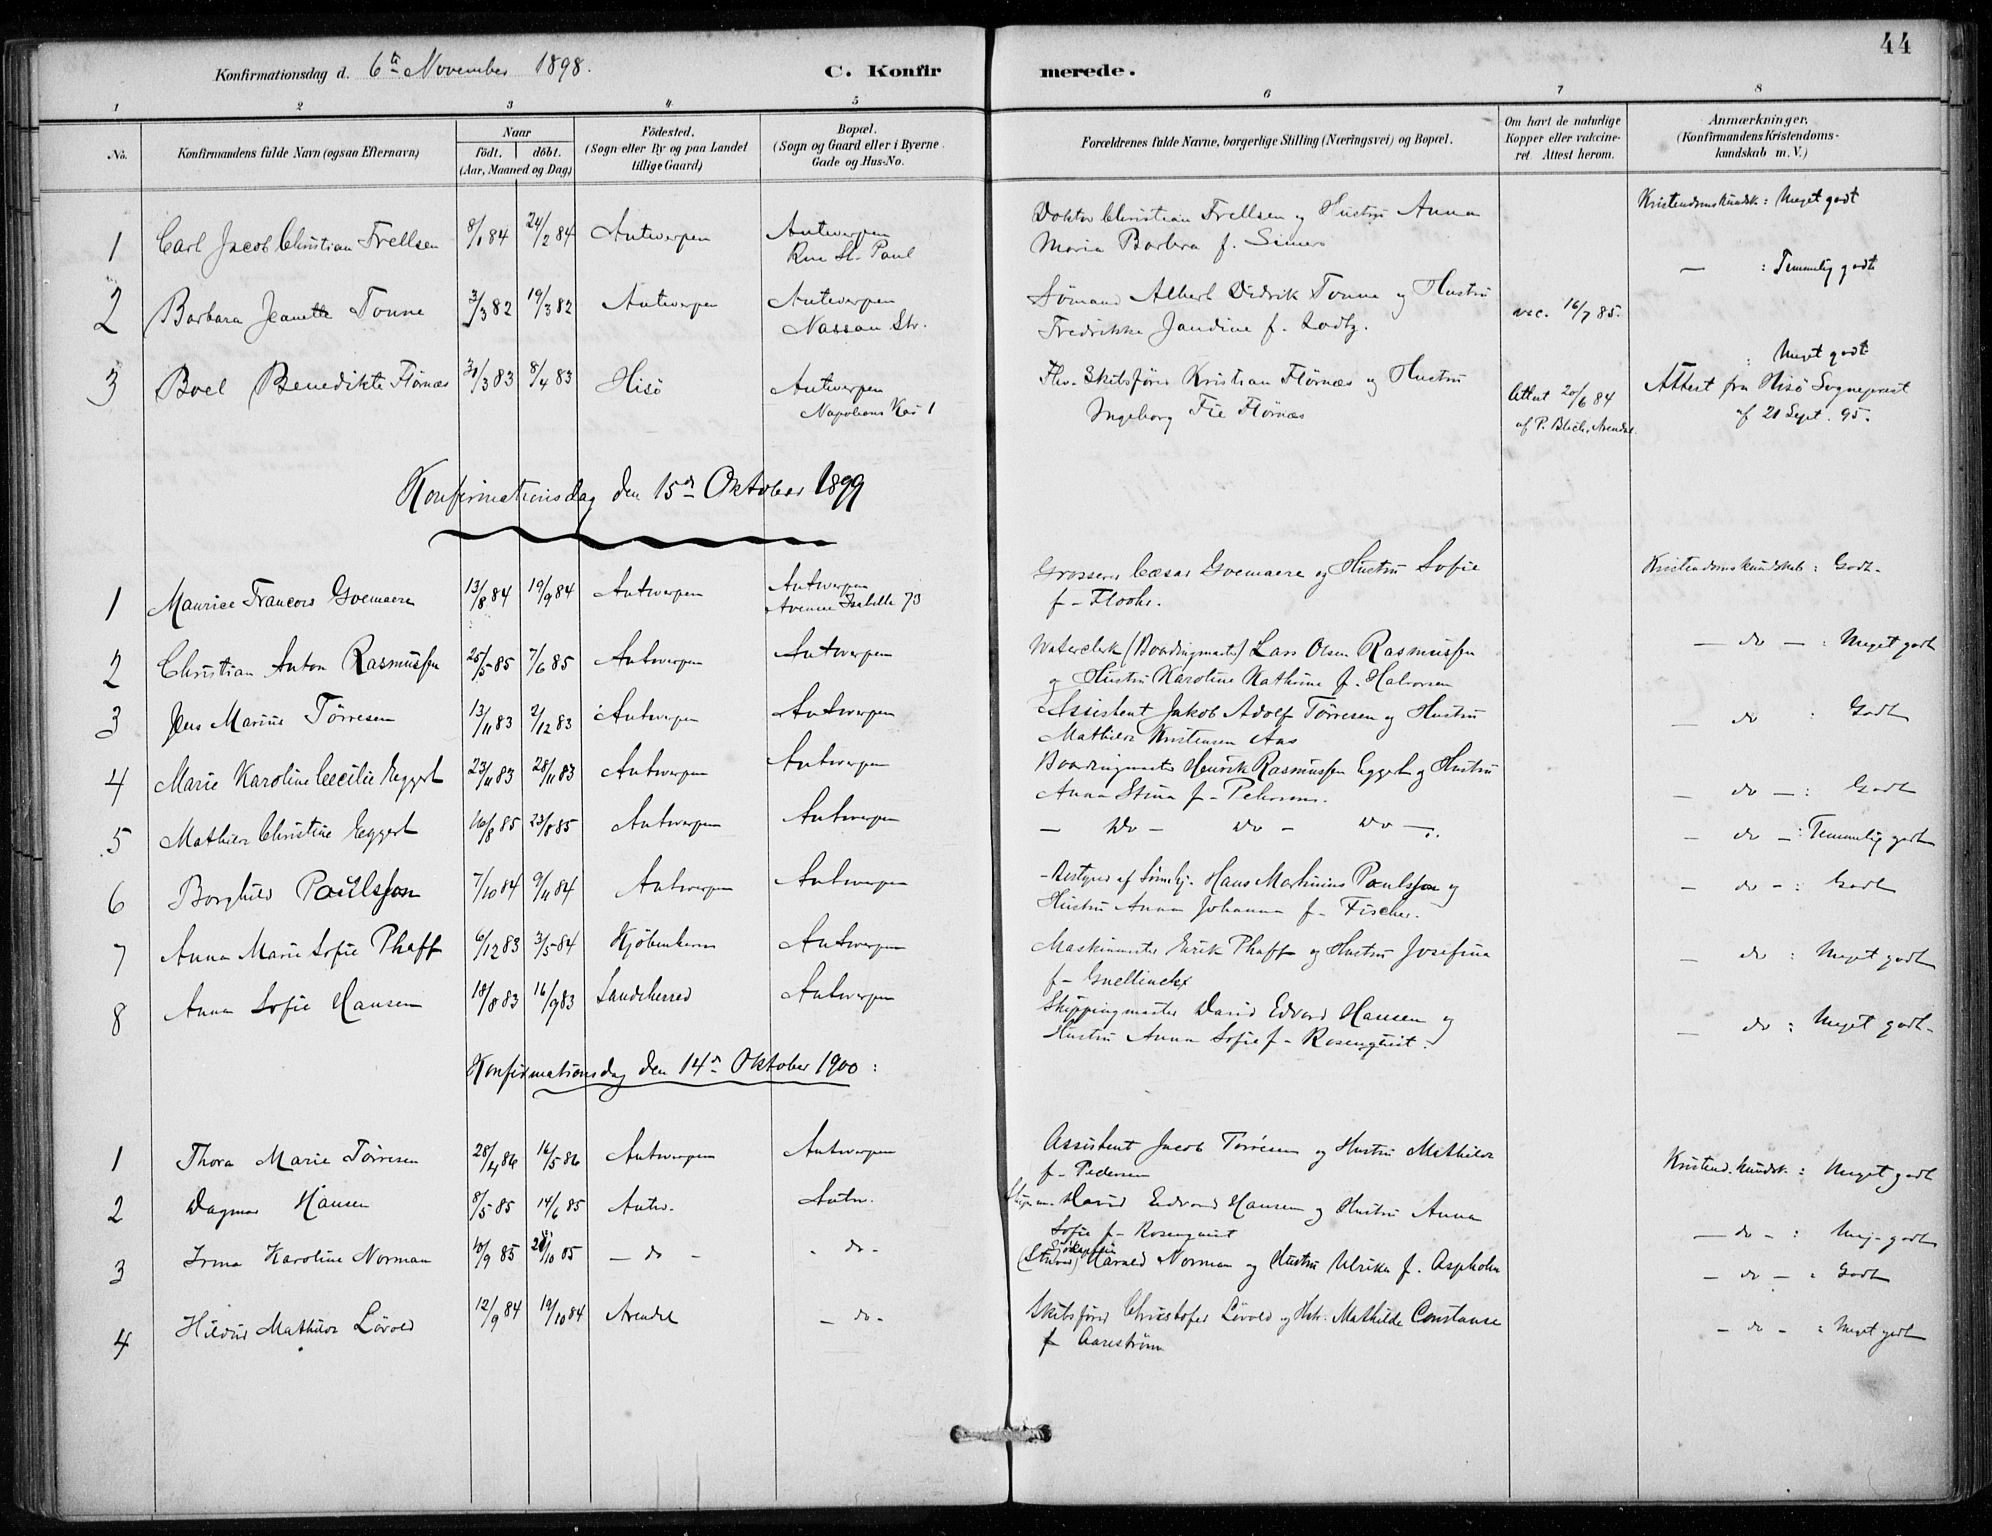 44
Konfirmationsdag d. 6te November 1898. C. Konfirmerede.
1 2 3 4 5 6 7 8
No. Konfirmandens fulde Navn (ogsaa Efternavn) Naar födt. döbt. (Aar, Maaned og Dag) Födested. (Sogn eller By og paa Landet tillige Gaard) Bopæl. (Sogn og Gaard eller i Byerne Gade og Hus-No. Forældrenes fulde Navne, borgerlige Stilling (Næringsvei) og Bopæl. Om havt de naturlige Kopper eller vaccineret Attest herom. Anmærkninger. (Konfirmandens Kristendomskundskab m. V.)
1 Carl Jacob Christian Frellsen 8/1 84 24/2 84 Antwerpen Antwerpen Rue St. Paul Doktor Christian Frellsen og Hustru Anna Maria Barbra f. Simers Kristendomskundsk: Meget godt
2 Barbara Jeanette Tonne 3/3 82 19/3 82 Antwerpen Antwerpen Nassau Str. Sömand Albert Didrik Tonne og Hustru Fredrikke Jandine f. vac. 16/7 85. — : Temmelig godt
3 Boel Benedikte Flörnæs 31/3 83 8/4 83 Hisö Antwerpen Napoleons Kai 1 Fhv. Skibsförer Kristian Flörnæs og Hustru Ingeborg Fie Flörnæs Attest 20/6 84 af P. Blich, Arendal. : Meget godt Attest fra Hisö Sogneprest af 21 Sept. 95.
Konfirmationsdag den 15de Oktober 1899
1 Maurice Francois Goemaere 13/8 84 19/9 84 Antwerpen Antwerpen Avenue Isabelle 73 Grosserer Cæsar Goemaere og Hustru Sofie f- Floohr. Kristendomskundskab: Godt-
2 Christian Anton Rasmussen 25/5 85 7/6 85 Antwerpen Antwerpen Waterclerk (Boardingmaster) Lars Olsen Rasmussen og Hustru Karoline Kathrine f. Halvorsen — do — : Meget godt
3 Jens Marius Törresen 13/11 83 2/12 83 Antwerpen Antwerpen Assistent Jakob Adolf Törresen og Hustru Mathilde Kristensen Aas — do : Godt
4 Marie Karoline Cecilie Eggert 23/11 83 28/11 83 Antwerpen Antwerpen Boardingmaster Henrik Rasmussen Eggert og Hustru Anna Stina f- Petersens. — do — : Godt
5 Mathilde Christine Eggert 16/8 85 23/8 85 Antwerpen Antwerpen — Do — Do — Do —. — do — : Temmelig godt
6 Borghild Paulsson 7/10 84 9/11 84 Antwerpen Antwerpen Bestyrer af Sömhj. Hans Martinius Paulsson og Hustru Anna Johanna f- Fischer. — do — : Godt
7 Anna Marie Sofie Phaff 6/12 83 3/5 84 Kjöbenhavn Antwerpen Maskinmester Erik Phaff og Hustru Josefina f- Gnellinckx — do : Meget godt
8 Anna Sofie Hansen 18/8 83 16/9 83 Sandeherred Antwerpen Shippingmaster David Edvard Hansen og Hustru Anna Sofie f- Rosenqvist. — do : Meget godt-
Konfirmationsdag den 14de Oktober 1900:
1 Thora Marie Törresen 28/4 86 16/5 86 Antwerpen Antwerpen Assistent Jacob Törresen og Hustru Mathilde f- Pedersen Kristend.kundsk: Meget godt
2 Dagmar Hansen 8/5 85 14/6 85 Antw. Antw. David Edvard Hansen og Hustru Anna Sofie f- Rosenqvist — do — : Meg- godt
3 Irma Karoline Norman 10/9 85 /10 85 — do — - do - (Stuvr) Sjökaptein Harald Norman og Hustru Ulrika f. Aspholm — do — : Godt
4 Hildur Mathilde Lövold 12/9 84 19/10 84 Arendal — do - Skibsförer Christofer Lövold og Hstr. Mathilde Constanse f Aareström — do — : Meget godt